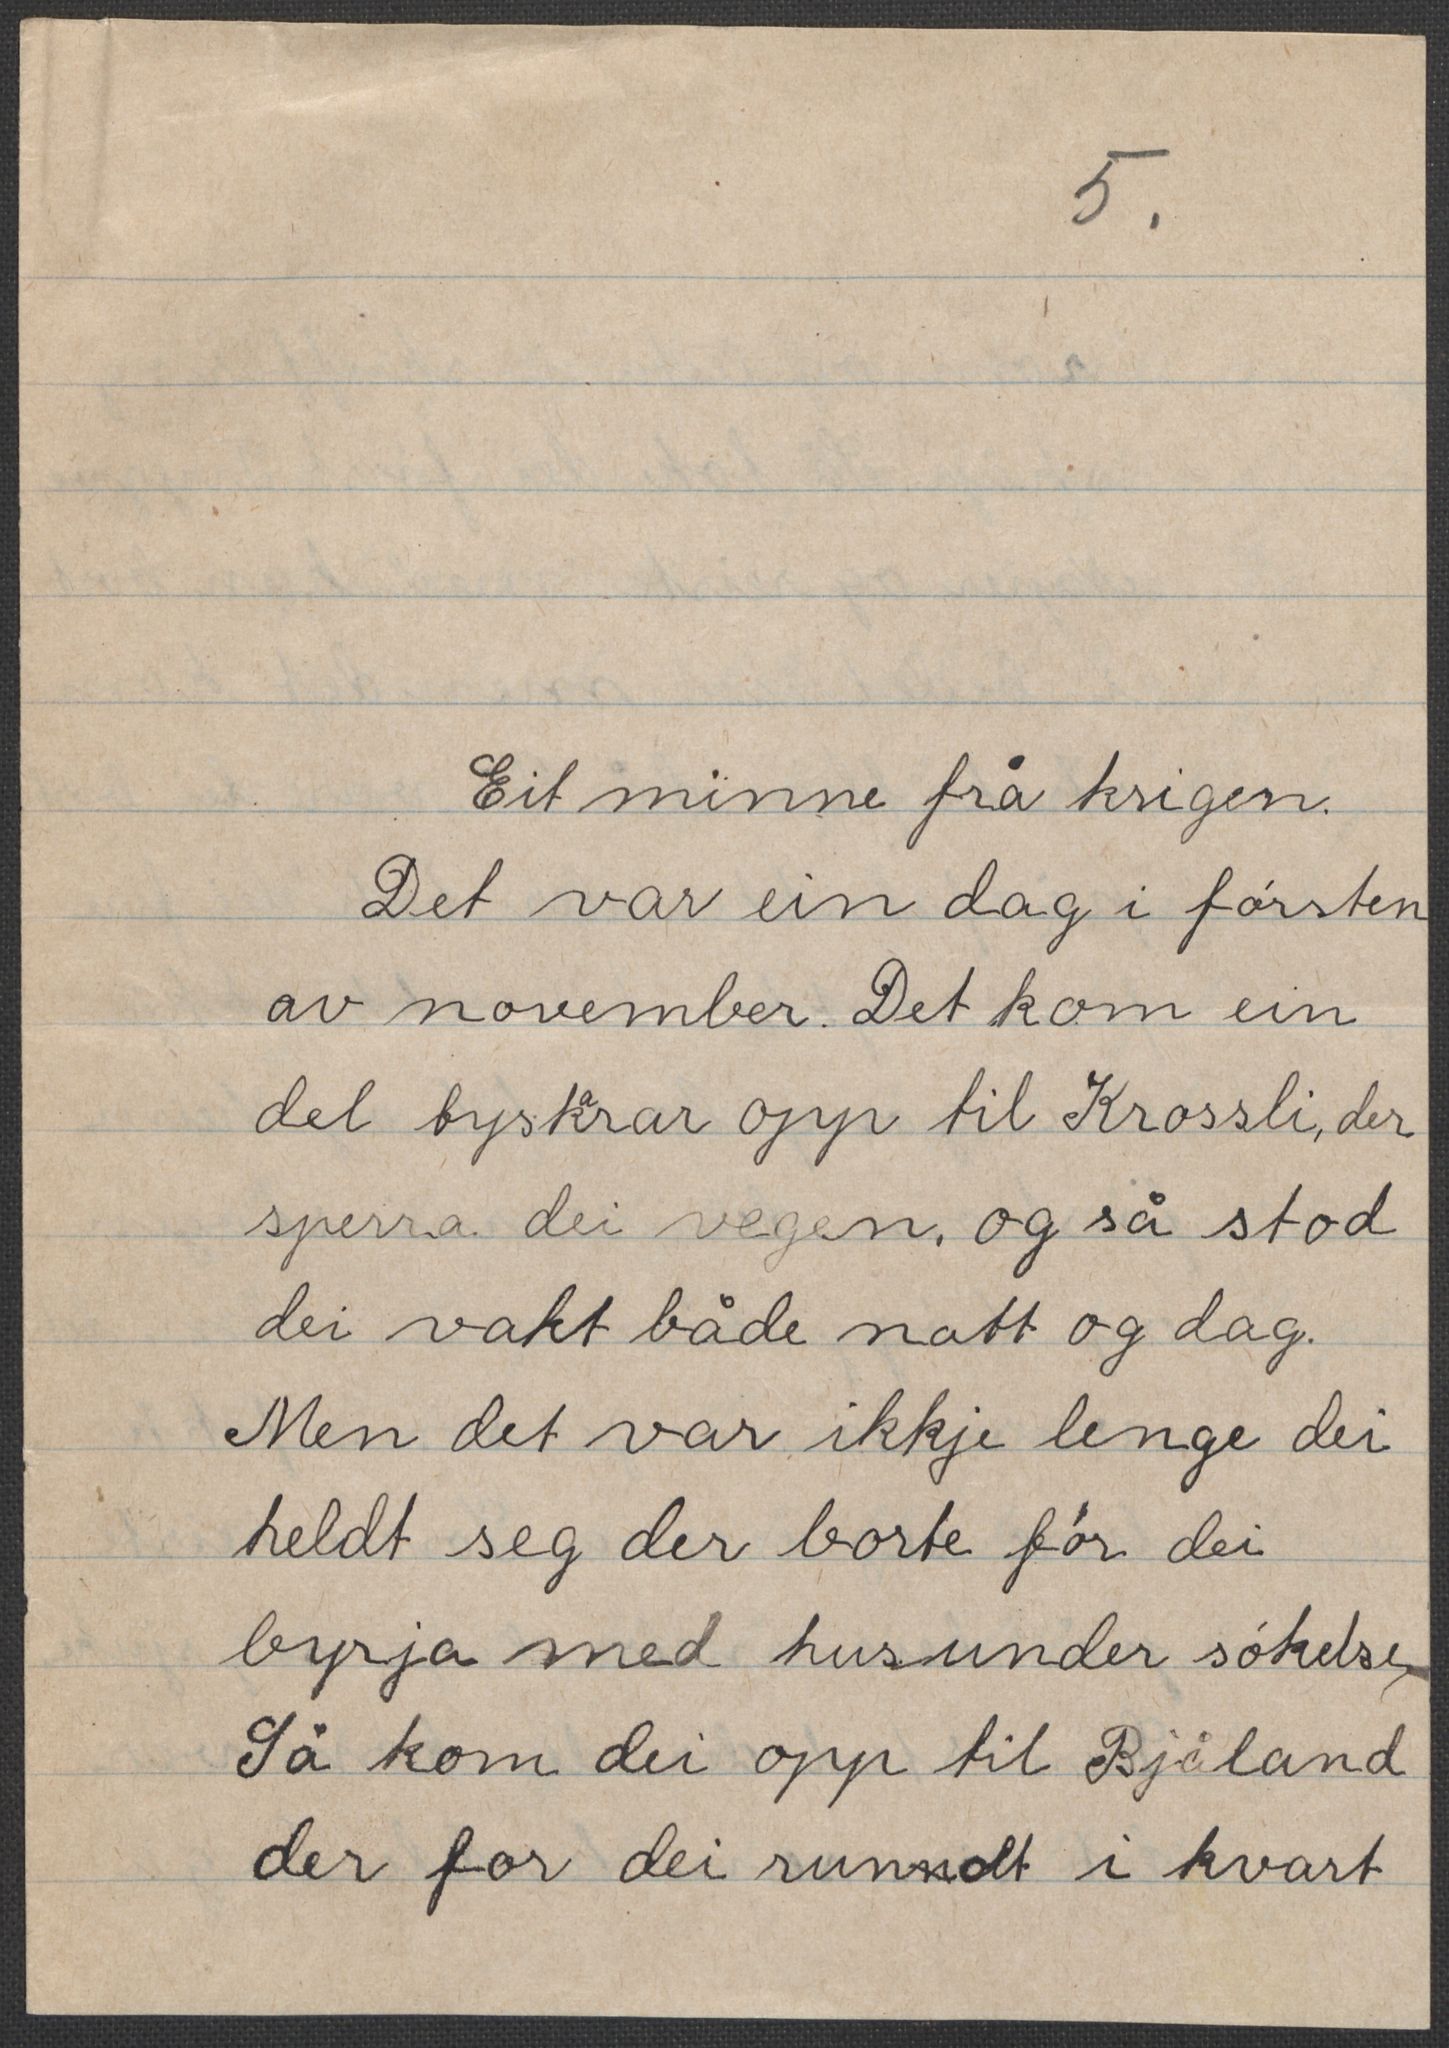 5.
Eit minne frå krigen.
Det var ein dag i fórsten
av november. Det kom ein
del tyskarar opp til Krossli, der
sperra dei vegen. og så stod
dei vakt både natt og dag.
Men det var ikkje lenge dei
heldt seg der borte fór dei
byrja med husunder sókelse,
Så kom dei opp til Bjåland
der for dei runndt i kvart